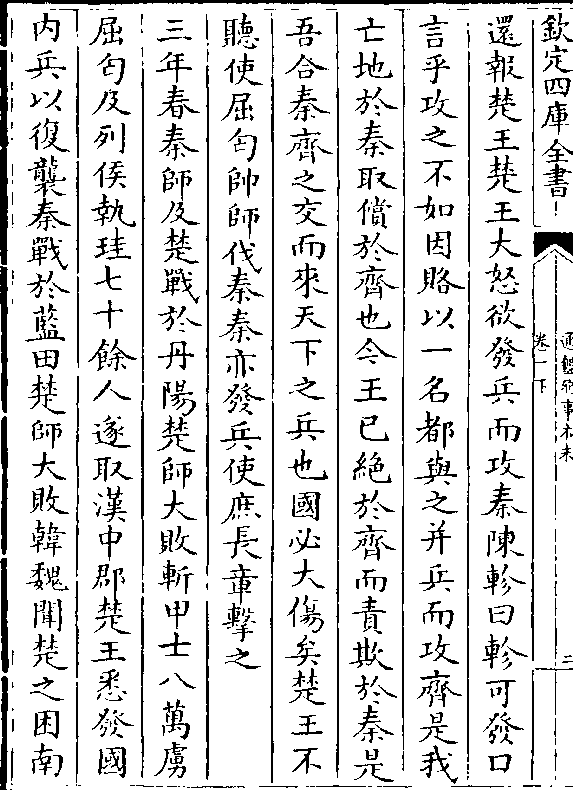 欽定四庫全書
通鑑紀事本末
卷一下
三
還報楚王楚王大怒欲發兵而攻秦陳軫曰軫可發口
言乎攻之不如因賂以一名都與之并兵而攻齊是我
亡地於秦取償於齊也今王已絶於齊而責欺於秦是
吾合秦齊之交而來天下之兵也國必大傷矣楚王不
聽使屈匄帥師伐秦秦亦發兵使庶長章擊之
三年春秦師及楚戰於丹陽楚師大敗斬甲士八萬虜
屈匄及列侯執珪七十餘人遂取漢中郡楚王悉發國
内兵以復襲秦戰於藍田楚師大敗韓魏聞楚之困南